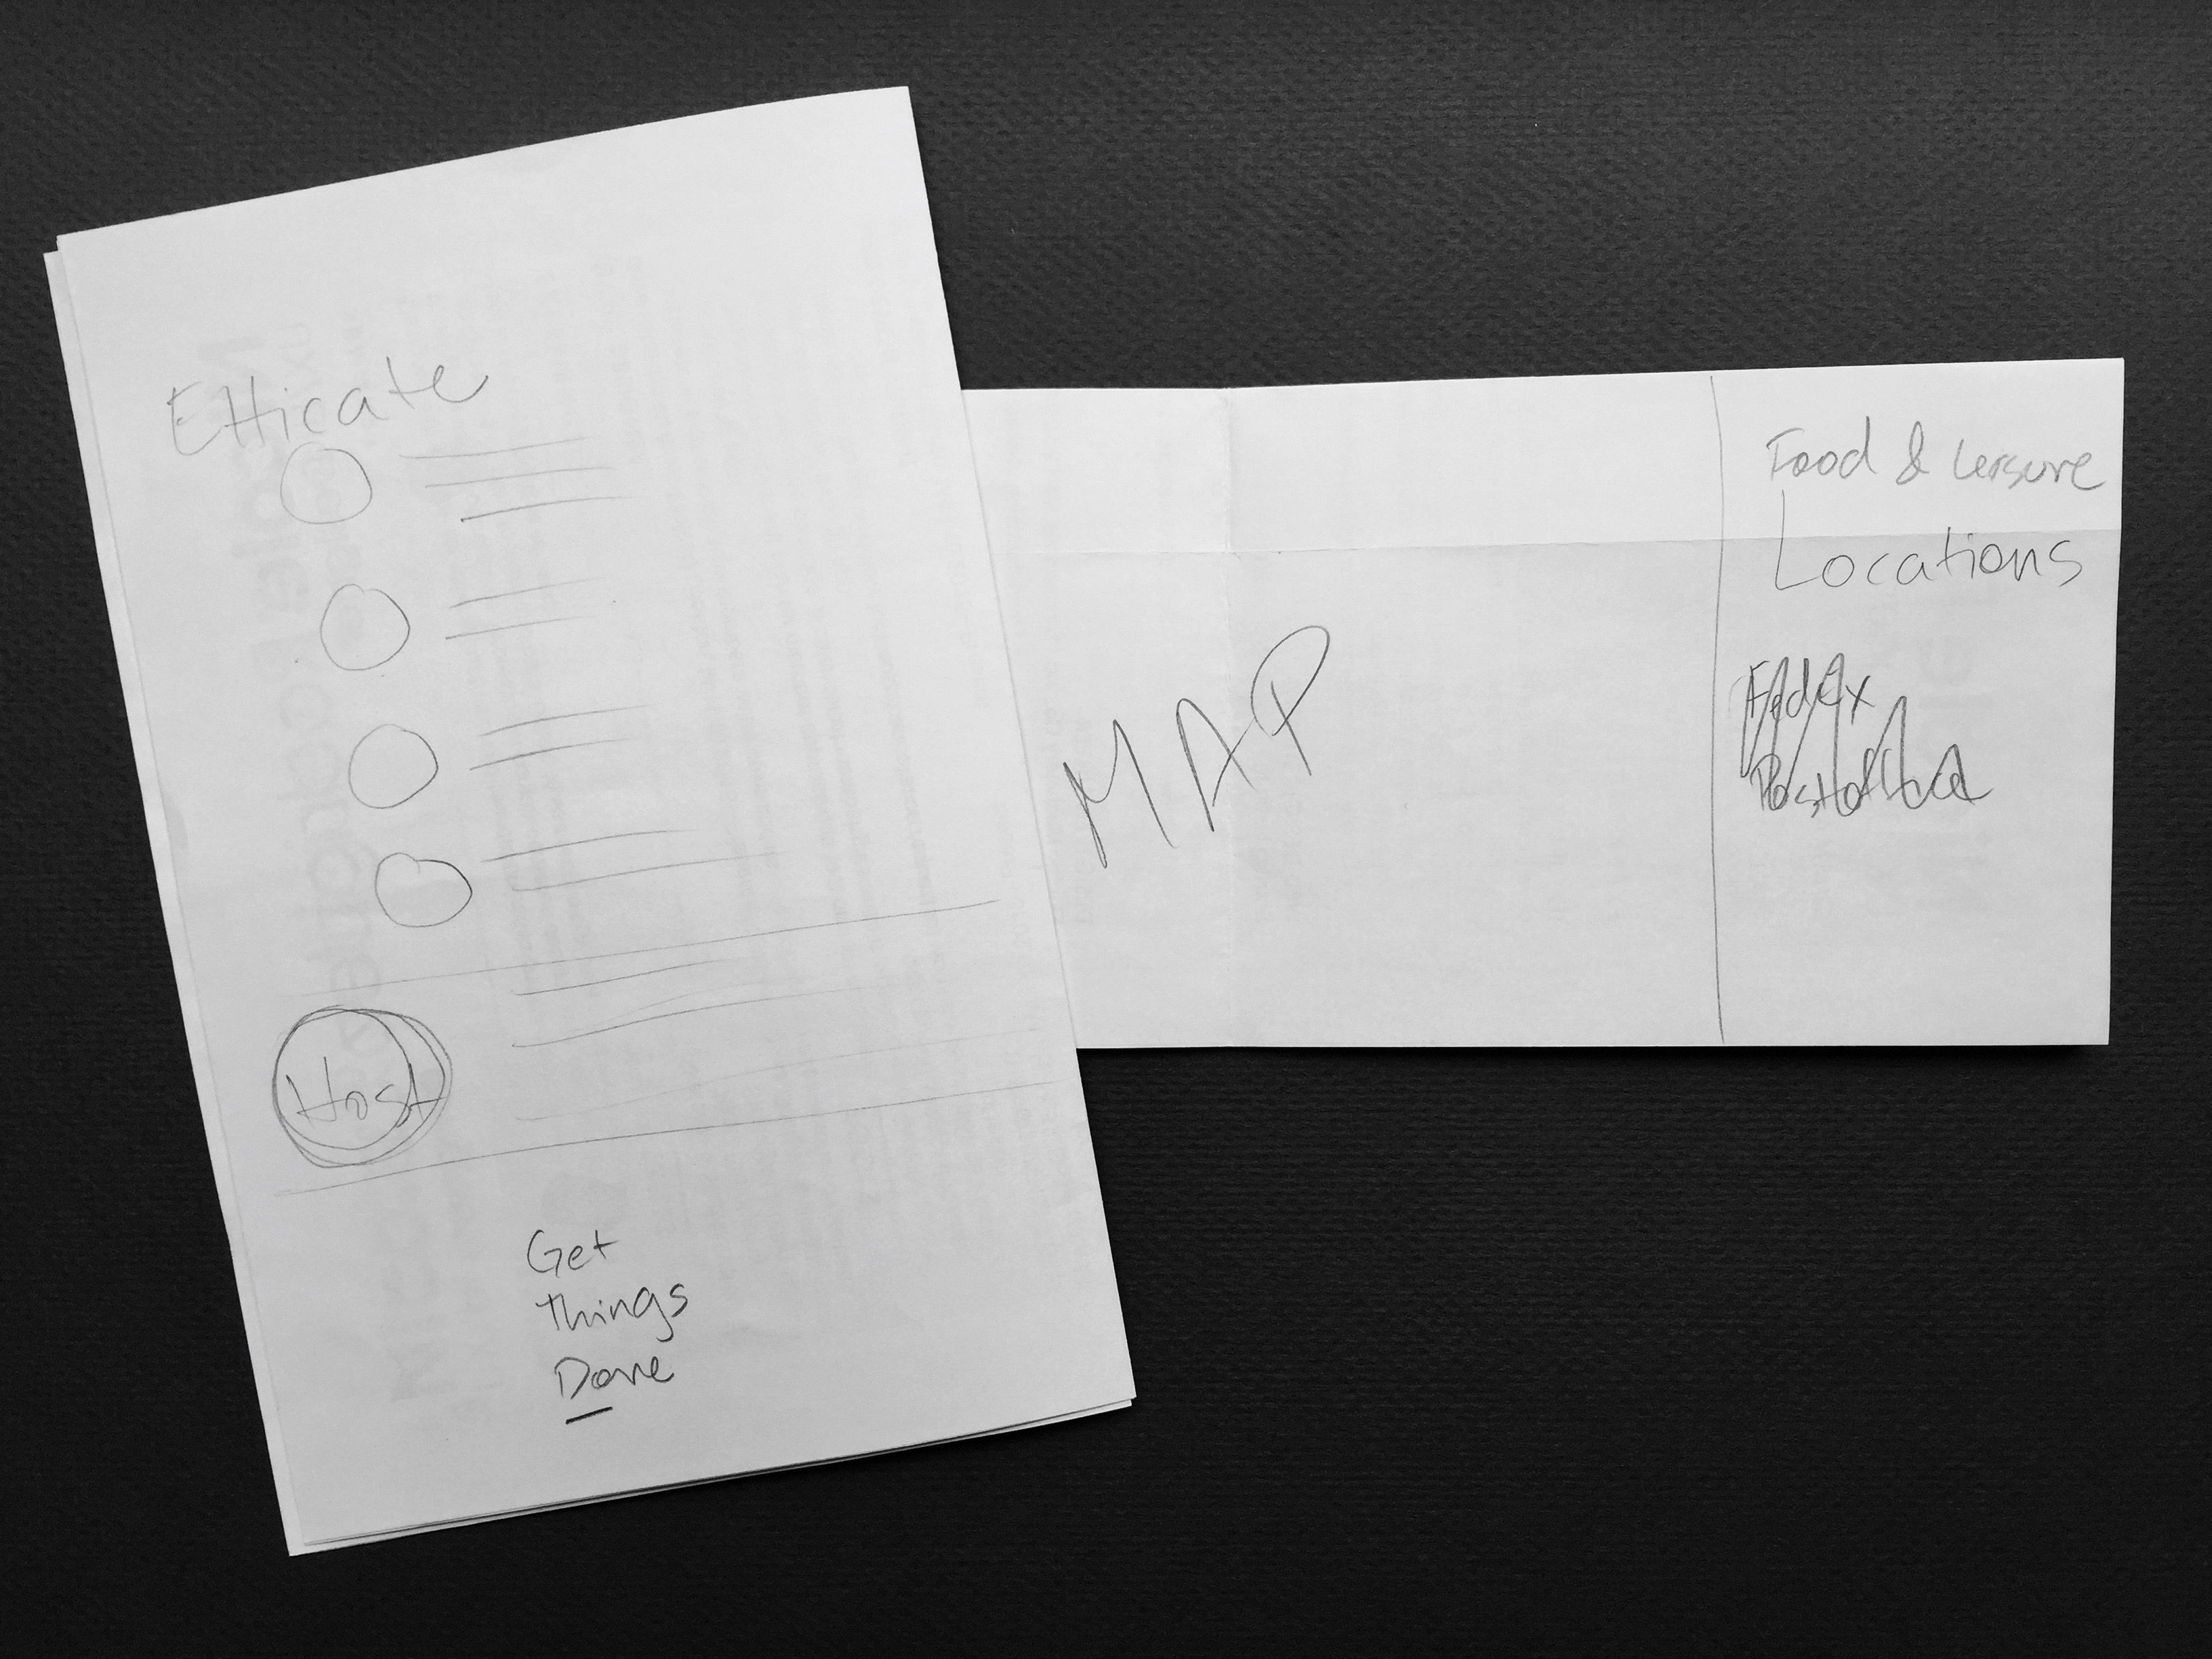 Efficate
Host
Get
Things
Done
MAP
Food & Leisure
Locations
Fedex
Post office